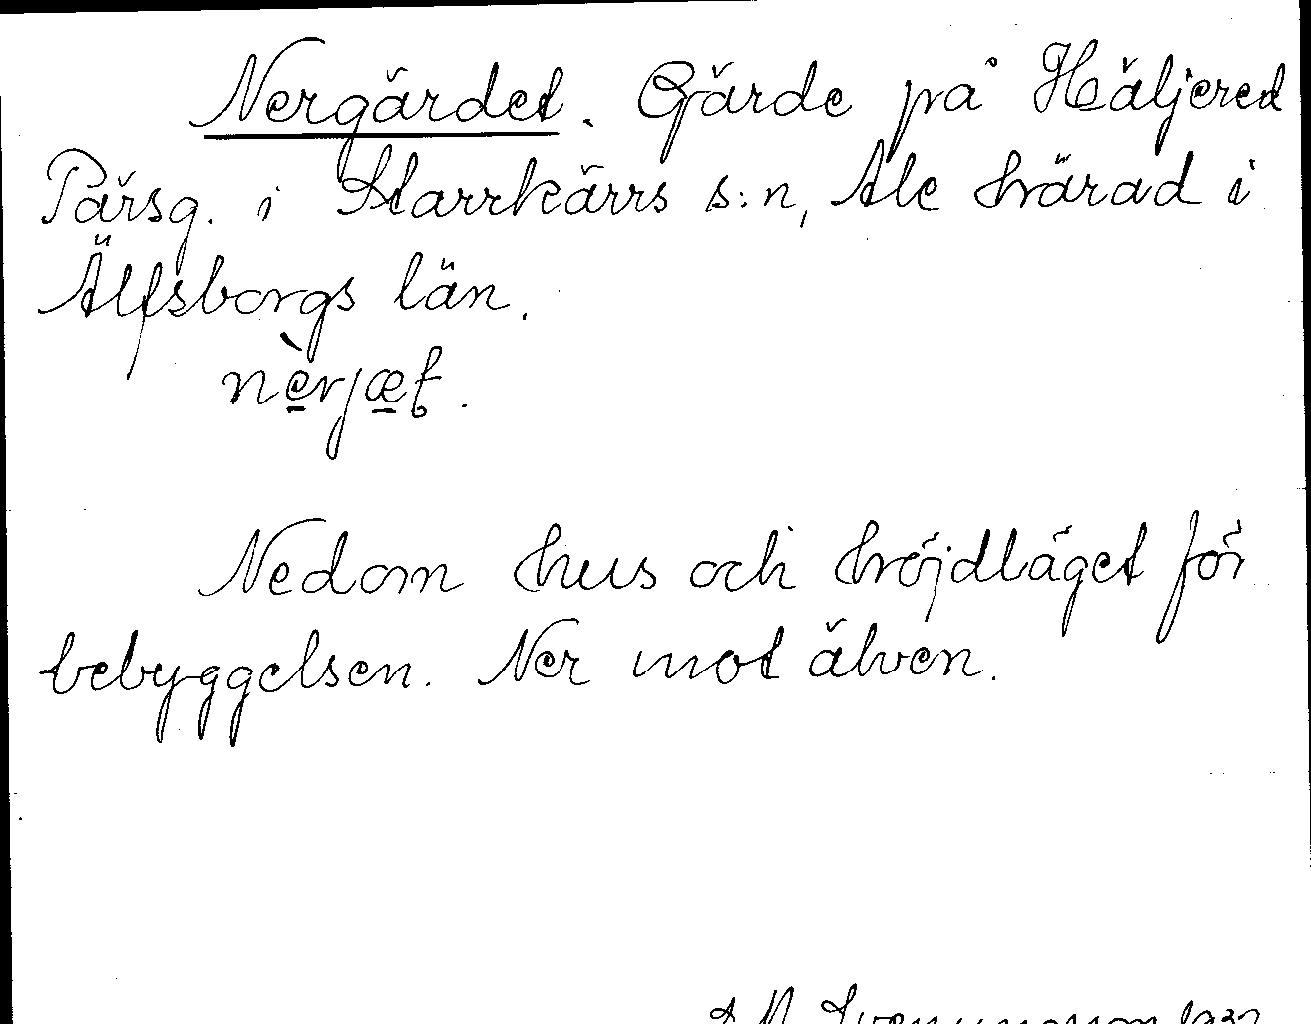 Nergärdet. Gärde på Häljered
Pärsg. i Starrkärrs s:n, Ale härad i
Älfsborgs län.
nèrjæt.
Nedom hus och höjdläget för
bebyggelsen. Ner mot älven.